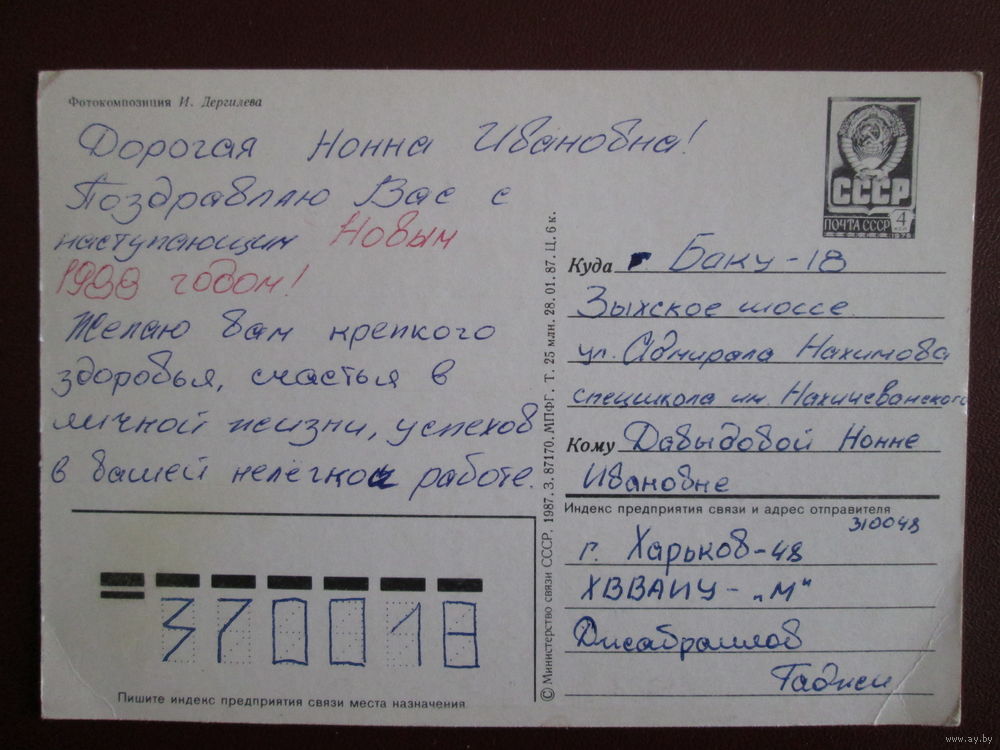 Фотокомпозиция И. Дергилева
Дорогая Нонна Ивановна!
Поздравляю Вас с
наступающим Новым
1988 годом!
Желаю вам крепкого
здоровья, счастья в
личной жизни, успехов
в вашей нелёгкой работе.
СССР
ПОЧТА СССР 4
Куда г. Баку-18
Зыхское шоссе
ул. Адмирала Нахимова
спецшкола им. Нахичеванского
Кому Давыдовой Нонне
Ивановне
Индекс предприятия связи и адрес отправителя
310048
г. Харьков-48
ХВВАИУ - „М"
Джабраилов
Гаджи
370018
Пишите индекс предприятия связи места назначения
© Министерство связи СССР, 1987. З. 87170. МПФГ. Т. 25 млн. 28. 01. 87. Ц. 6 к.
www.ay.by